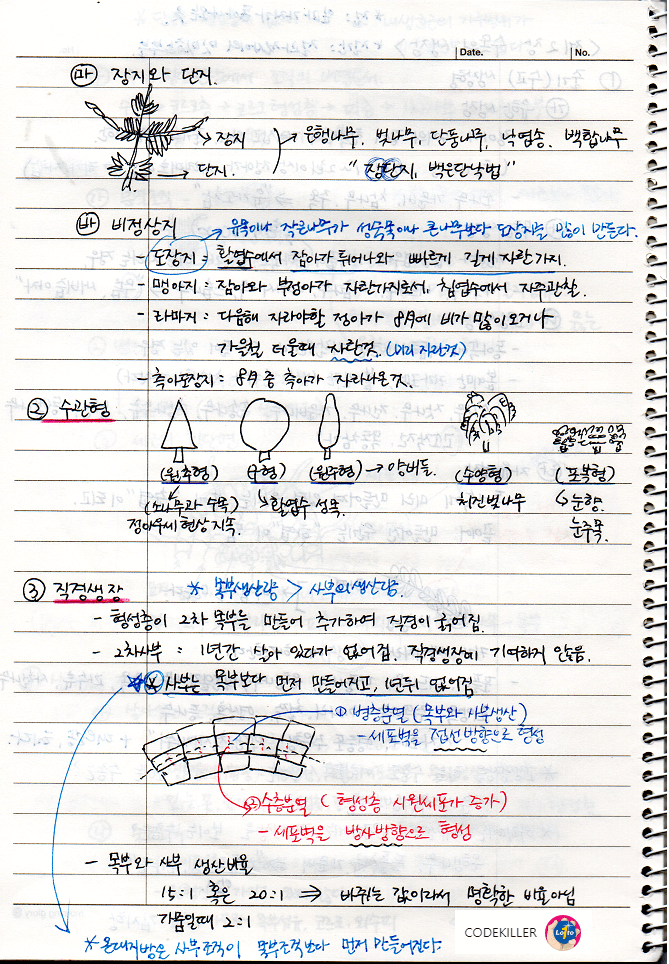 Date. No.
㉺ 장지와 단지.
→ 장지
→ 단지.
→ 은행나무, 벚나무, 단풍나무, 낙엽송, 백합나무
" 장단지, 백은단낙벚 "
㉳ 비정상지
→ 유목이나 작은나무가 성숙목이나 큰나무보다 도장지를 많이 만든다.
- 도장지 : 활엽수에서 잠아가 튀어나와 빠르게 길게 자란가지.
- 맹아지 : 잠아와 부정아가 자란가지로서, 침엽수에서 자주관찰.
- 라마지 : 다음해 자라야할 정아가 8月에 비가 많이오거나
가을철 더울때 자란것. (미리 자란것)
- 측아도장지 : 8月 중 측아가 자라나온것.
② 수관형
(원추형) (구형) (원주형) → 양버들. (수양형) (포복형)
(소나무과 수목) 활엽수 성목. 처진벚나무 눈향.
정아우세 현상 지속. 눈주목.
③ 직경생장 ※ 목부생산량 > 사부의생산량.
- 형성층이 2차 목부를 만들어 추가하여 직경이 굵어짐.
- 2차사부 : 1년간 살아 있다가 없어짐. 직경생장에 기여하지 않음.
※ 사부는 목부보다 먼저 만들어지고, 1년뒤 없어짐
① 병층분열 (목부와 사부생산)
- 세포벽을 접선방향으로 형성
② 수층분열 ( 형성층 시원세포가 증가)
- 세포벽을 방사방향으로 형성
- 목부와 사부 생산비율
15:1 혹은 20:1 ⇒ 바뀌는 값이라서 명확한 비요아님
가뭄일때 2:1
CODEKILLER
Lotto
※ 온대지방은 사부조직이 목부조직보다 먼저 만들어진다.